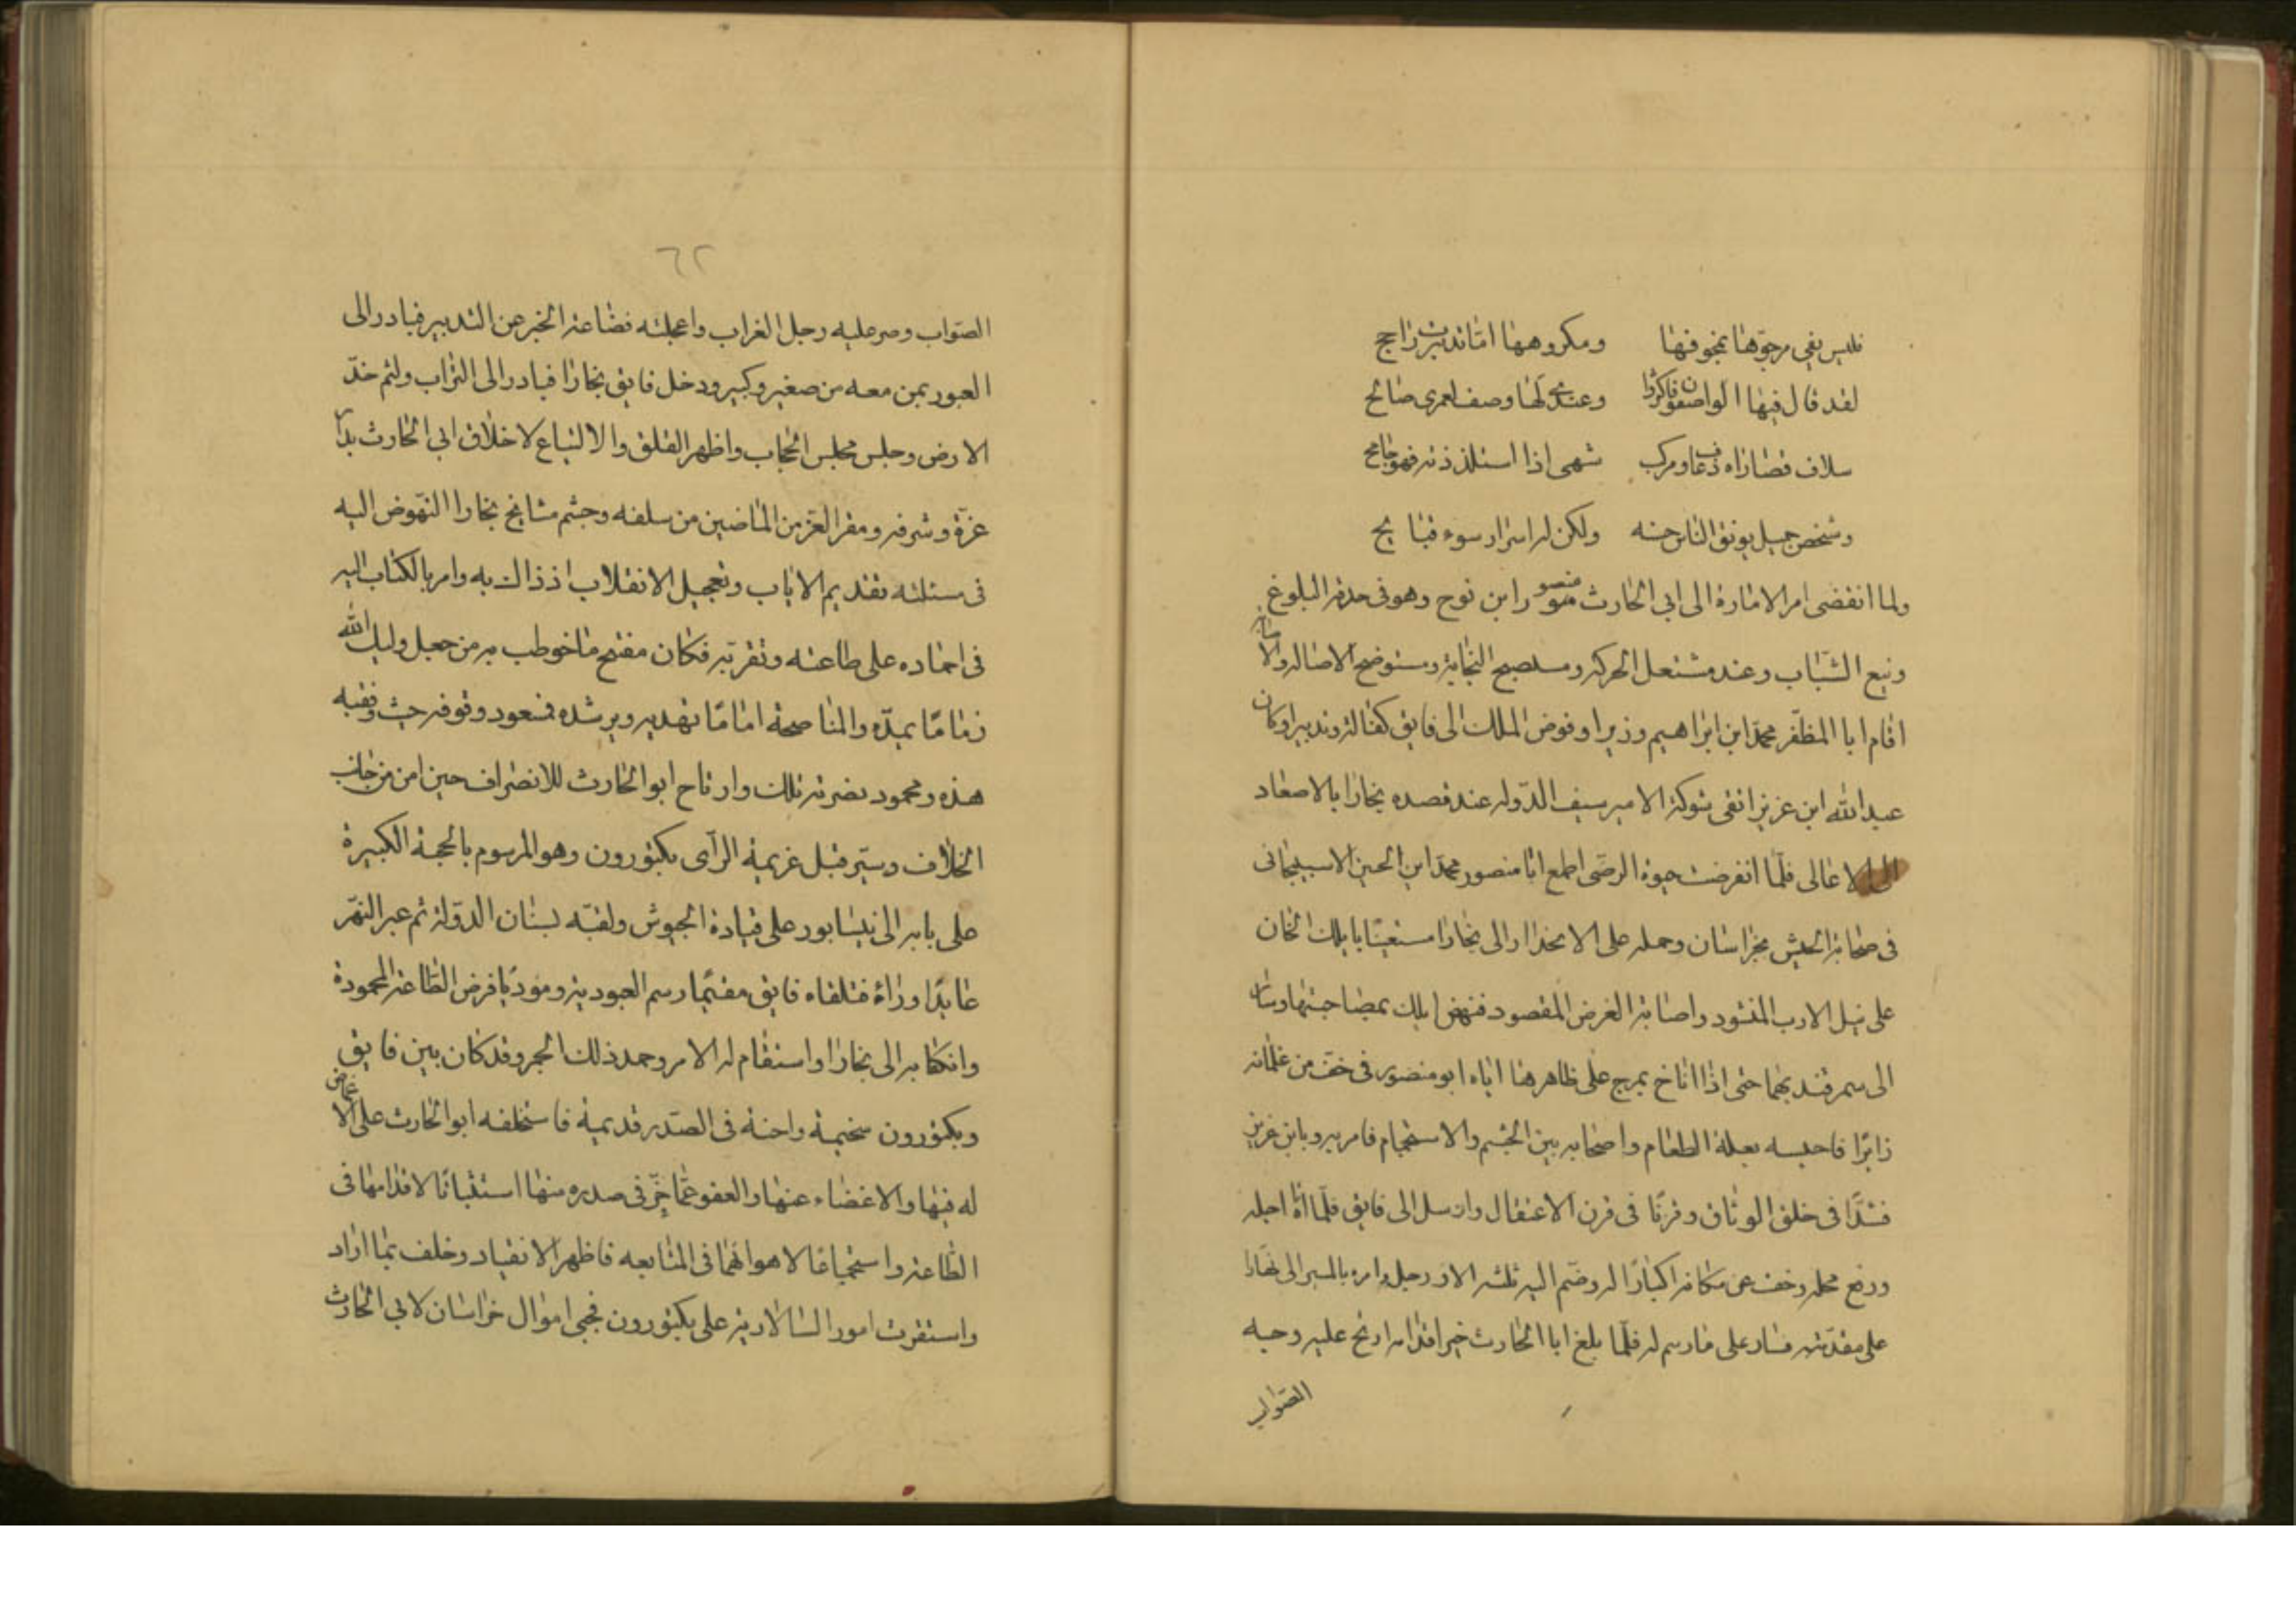 فليس يفي مرجوّها بمخوفها ومكروهها اما تدبرت راجح
لقد قال فيها الواصفون فاكثروا وعندي لها وصف لعمري صالح
سلاف قصاراه ذعاف ومركب شهى اذا استلذذته فهو جامح
وشخص جميل يونق الناس حسنه ولكن له اسرار سوء قبايح
ولما انقضى امر الامارة الى ابي الحارث منصور ابن نوح وهو في حدثه البلوغ
ونبع الشباب وعند مشتعل الحركه ومستصبح النجابه ومستوضح الاصاله والا
اقام ابا المظفر محمد ابن ابراهيم وزيرا وفوض الملك الى فايق كفالة وتدبيرا وكان
عبد الله ابن عزيز اتقى شوكة الامير سيف الدوله عند قصده بخارا بالاصعاد
الى الاعالى فلما انقرضت حيوة الرضى اطمع ابا منصور محمد ابن الحسين الاسبيجانى
في صحابة الجيش بخراسان وحمله على الانحدار الى بخارا مستعينا بايلك الخان
على نيل الارب المنشود واصابة الغرض المقصود فنهض ايلك بمصاحبتها وسار
الى سمرقند بهما حتى اذا اناخ بمرج على ظاهرها اتاه ابو منصور في خف من غلمانه
زايرا فاحبسه بعلة الطعام واصحابه بين الجشم والاستجمام فامر به وبابن عزيز
فشدّا في خلق الوثاق وقرنا في قرن الاعتقال وارسل الى فايق فلما اتاه اجله
ورفع محله وخف عن مكانه اكبارا له وضم اليه ثلثه الاف رجل وامره بالمسير الى بخارا
على مقدمته فسار على مارسم له فلما بلغ ابا الحارث خبر اقدامه ارتج عليه وجه
الصواب
٦٢
الصواب وصر عليه رجل الغراب واعجلته فضاعة الخبر عن التدبير فبادر الى
العبور بمن معه من صغير وكبير ودخل فايق بخارا فبادر الى التراب ولثم خد
الارض وجلس مجلس الحجاب واظهر القلق والالتياع لاخلاق ابي الحارث بدار
عزة وشرفه ومقر العز من الماضين من سلفه وجشم مشايخ بخارا النهوض اليه
في مسئلته تقديم الاياب وتعجيل الانقلاب اذ ذاك به وامر بالكتاب اليه
في احماده على طاعته وتقربه فكان مفتتح ما خوطب به من جعل وليك الله
زماما بيده والمناصحة اماما تهديه ويرشده فسعود وتوفه حيث وقفه
هذه ومحمود نصرته تلك وارتاح ابو الحارث للانصراف حين امن من جانب
الخلاف وسير قبل عزيمة الرآى بكتوزون وهو المرسوم بالحجبة الكبيرة
على بابه الى نيسابور على قيادة الجيوش ولقبه بسنان الدولة ثم عبر النهر
عايدا وراءة فتلقاه فايق مقيما رسم العبوديه ومودّيا فرض الطاعه المحمودة
وانكفا به الى بخارا واستقام له الامر وحمد ذلك الحجر وقد كان بين فايق
وبكتوزون سخيمة واحنة في الصدر قديمية فاستخلفه ابو الحارث على الاغماض
له فيها والاغضاء عنها والعفو عما حز في صدره منها استثباتا لاقدامها في
الطاعه واستجماعا لاهوائهما في المتابعه فاظهر الانقياد وخلف بما اراد
واستقرت امور السالاريه على بكتوزون فجبى اموال خراسان لابي الحارث